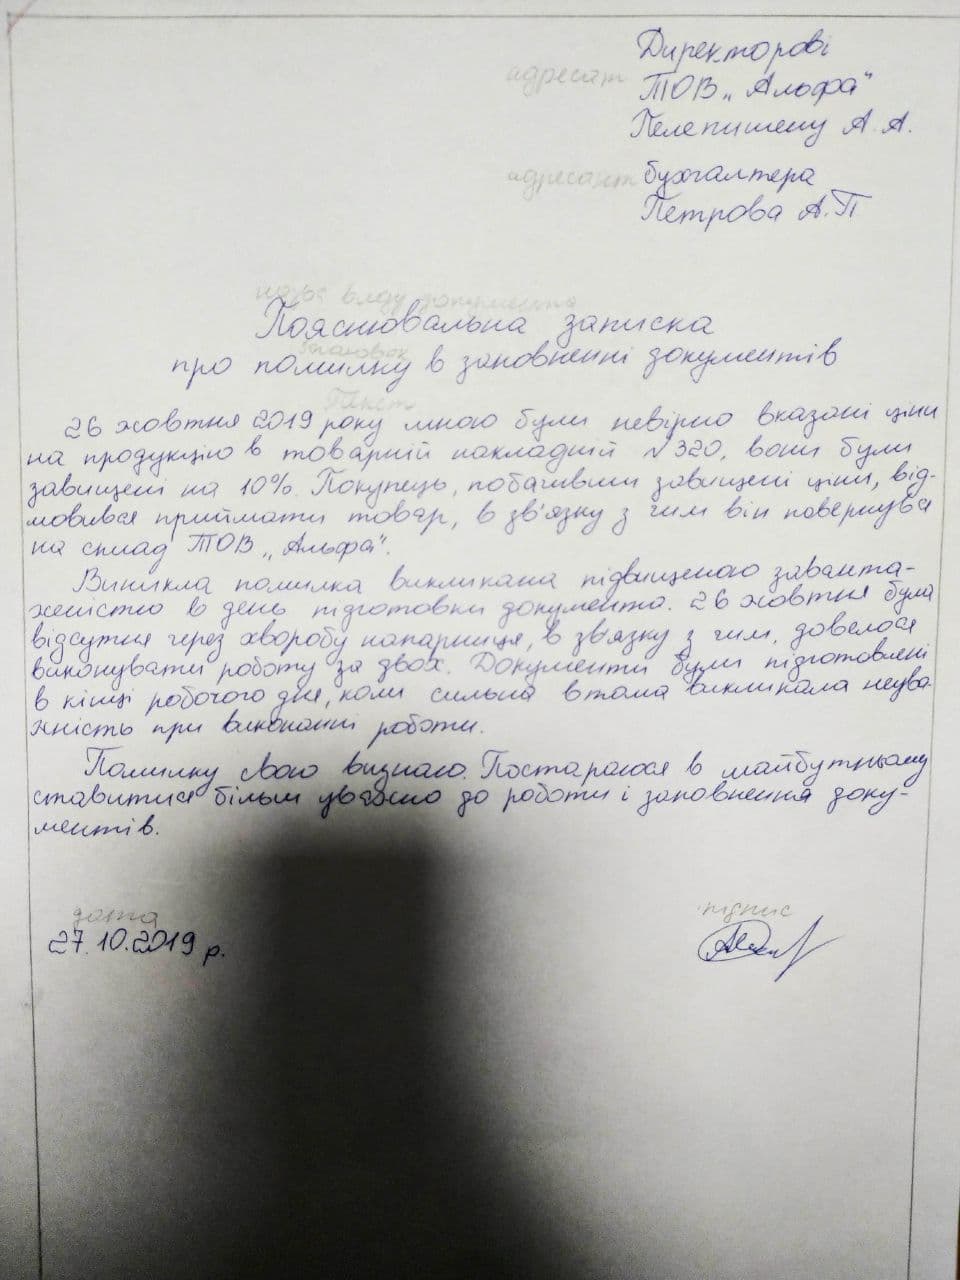 Директорові
адресат ТОВ „Альфа"
Пелепишену А. А.
адресант бухгалтера
Петрова А.П
назва виду документа
Пояснювальна записка
заголовок
про помилку в заповненні документів
Текст
26 жовтня 2019 року мною були невірно вказані ціни
на продукцію в товарній накладній №320, вони були
завищені на 10%. Покупець, побачивши завищені ціни, від-
мовився приймати товар, в зв'язку з чим він повернув
на склад ТОВ „Альфа".
Виникла помилка викликана підвищеною заванта-
женістю в день підготовки документа. 26 жовтня була
відсутня через хворобу напарниця, в зв'язку з чим, довелося
виконувати роботу за двох. Документи були підготовлені
в кінці робочого дня, коли сильна втома викликала неува-
жність при виконанні роботи.
Помилку свою визнаю. Постараюся в майбутньому
ставитися більш уважно до роботи і заповнення доку-
ментів.
дата підпис
27.10.2019 р.